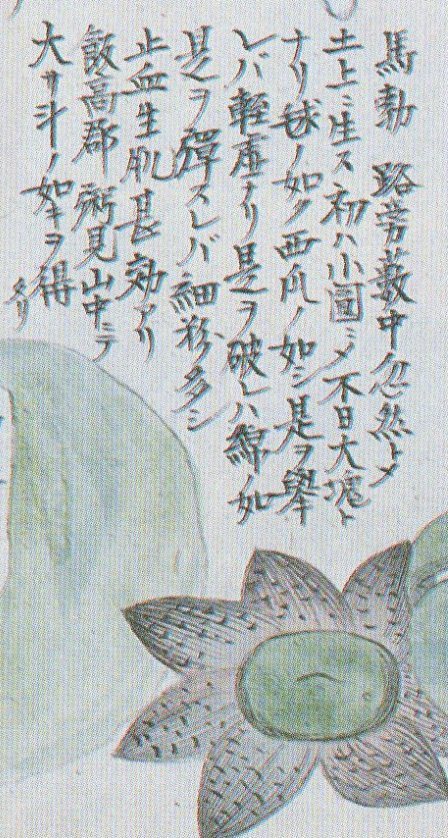 馬勃 路旁藪中忽然トメ
土上ニ生ス初ハ小圓ニメ不日大塊ト
ナリ毬ノ如ク西瓜ノ如シ是ヲ擧
レバ輕虚ナリ是ヲ破レハ綿ノ如
是ヲ彈スレバ細粉多シ
止血生肌甚効アリ
飯高郡粥見山中ニテ
大サ斗ノ如キヲ得
タリ